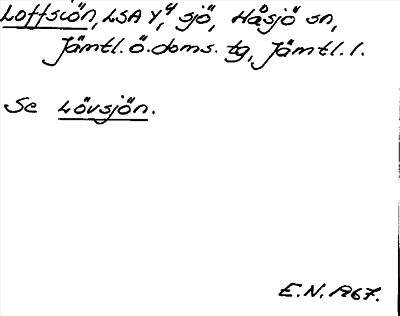 Loffsiön, LSA Y, 4 sjö, Håsjö sn,
Jämtl. ö. doms. tg, Jämtl. l.
Se Lövsjön.
E.N. 1967.